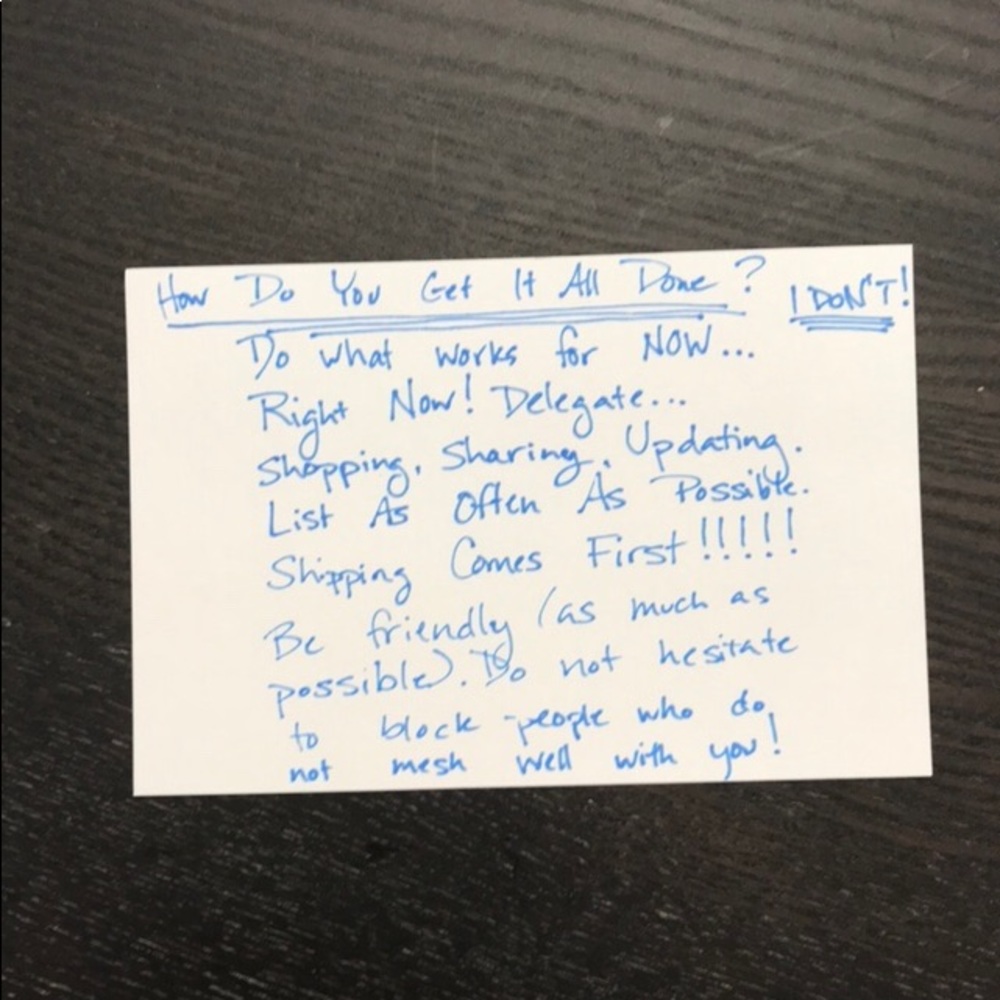 How Do You Get It All Done? I DON'T!
Do what works for NOW...
Right Now! Delegate...
Shopping. Sharing. Updating.
List As Often As Possible.
Shipping Comes First!!!!!
Be friendly (as much as
possible). Do not hesitate
to block people who do
not mesh well with you!